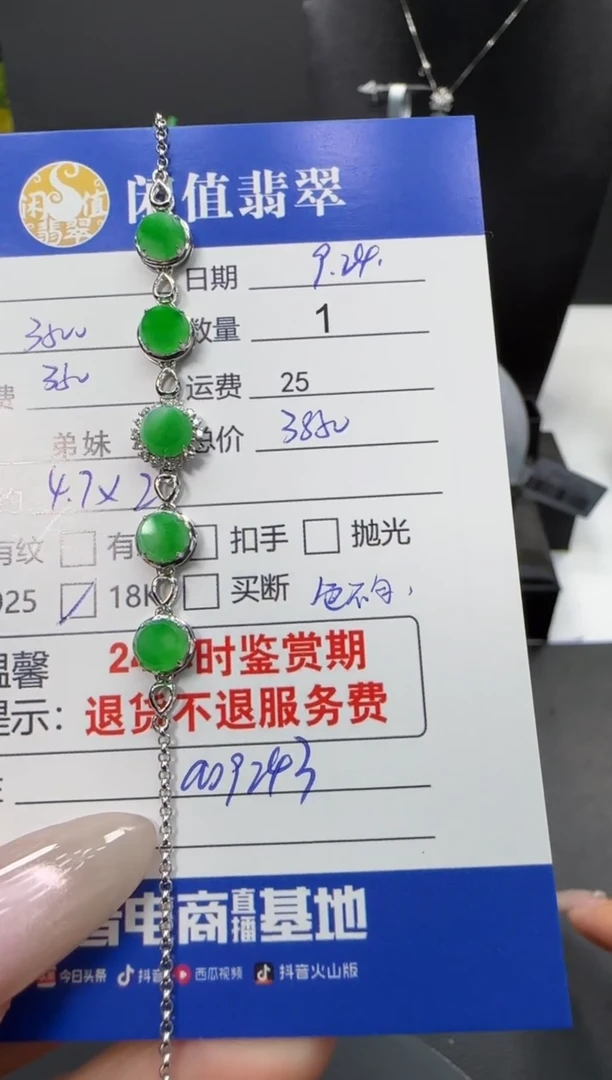 闲值翡翠
闲值翡翠
日期 9.24.
3500 数量 1
费 350 运费 25
弟妹 总价 3850
4.7×2
有纹 有 扣手 抛光
925 18K 买断 色不匀,
温馨 24小时鉴赏期
提示: 退货不退服务费
电商直播基地
今日头条 抖音 西瓜视频 抖音火山版